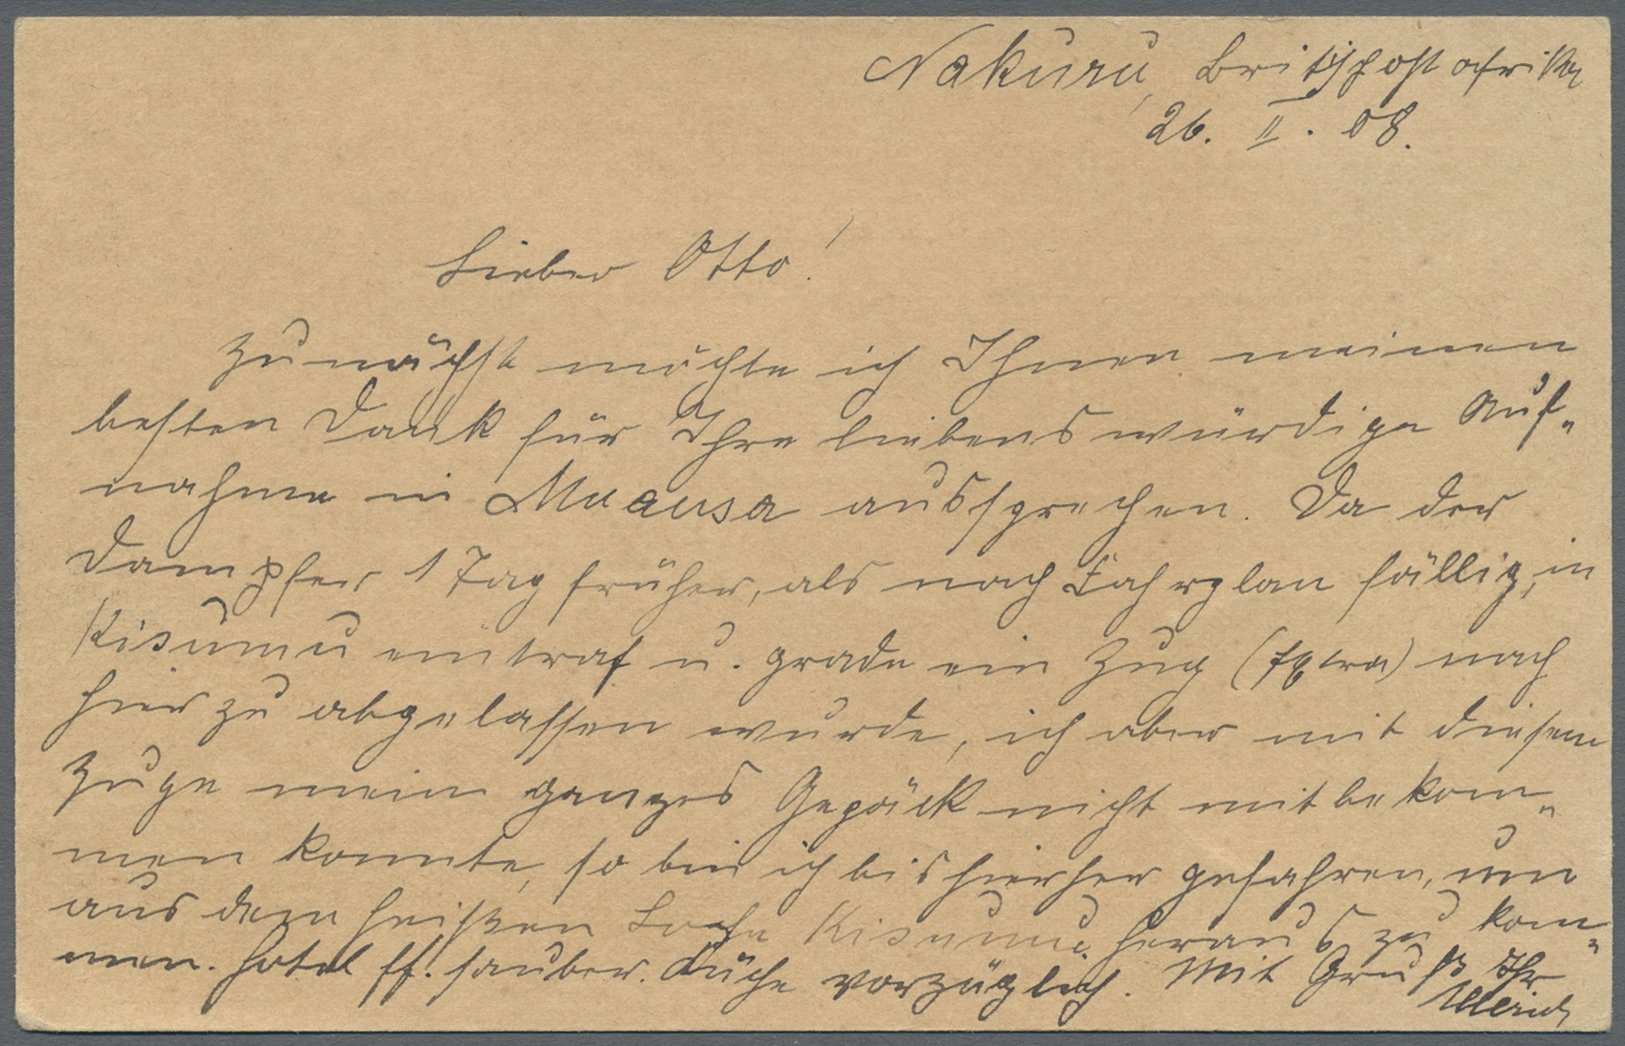 Nakuru, Britischostafrika
26. II. 08.
Lieber Otto!
Zunächst möchte ich Ihnen meinen
besten Dank für Ihre liebenswürdige Auf-
nahme in Muansa aussprechen. Da der
Dampfer 1 Tag früher, als nach Fahrplan fällig, in
Kisumu eintraf u. grade ein Zug (Extra) nach
hier zu abgelassen wurde, ich aber mit diesem
Zuge mein ganzes Gepäck nicht mitbekom-
men konnte, so bin ich bis hierher gefahren, um
aus dem heißen Loche Kisumu heraus zu kom-
men. Hotel ff. sauber. Küche vorzüglich. Mit Gruß Ihr